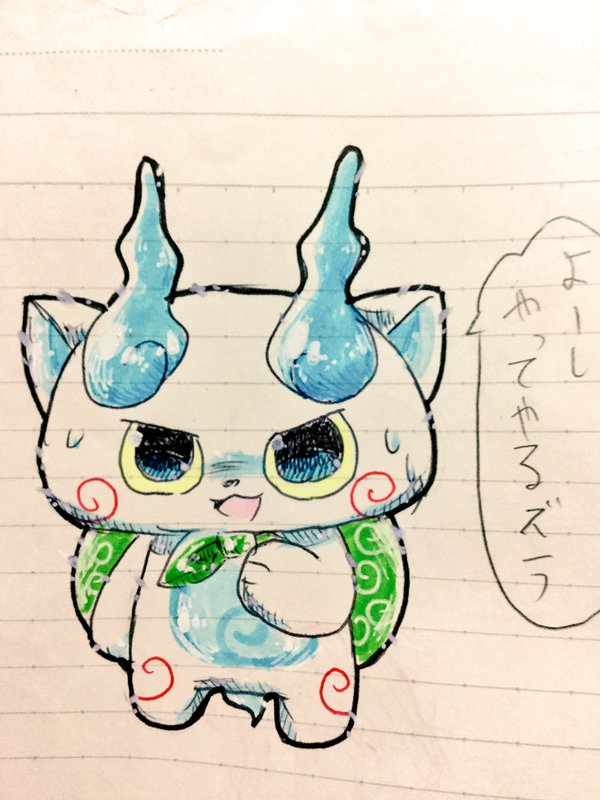 よーし
やってやるズラ